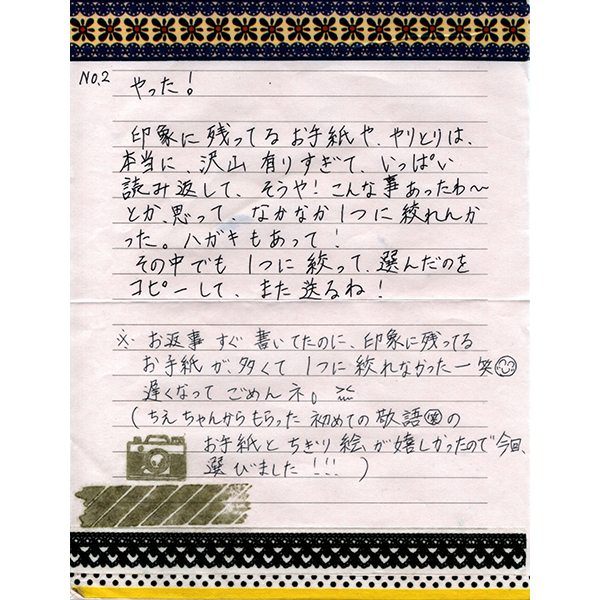 No.2
やった!
印象に残ってる お手紙や、やりとりは、
本当に、沢山 有りすぎて、いっぱい
読み返して、そうや!こんな事あったわ〜
とか、思って、なかなか1つに絞れんか
った。ハガキもあって!
その中でも 1つに 絞って、選んだのを
コピーして、また 送るね!
※ お返事 すぐ 書いてたのに、印象に残ってる
お手紙が、多くて 1つに絞れなかったー笑
遅くなって ごめんネ。><
(ちえちゃんからもらった 初めての 敬語笑の
お手紙と ちぎり絵が嬉しかったので今回、
選びました!!!)